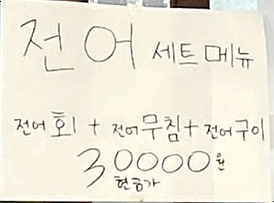 전어 세트메뉴
전어회 + 전어무침 + 전어구이
30000원
현금가